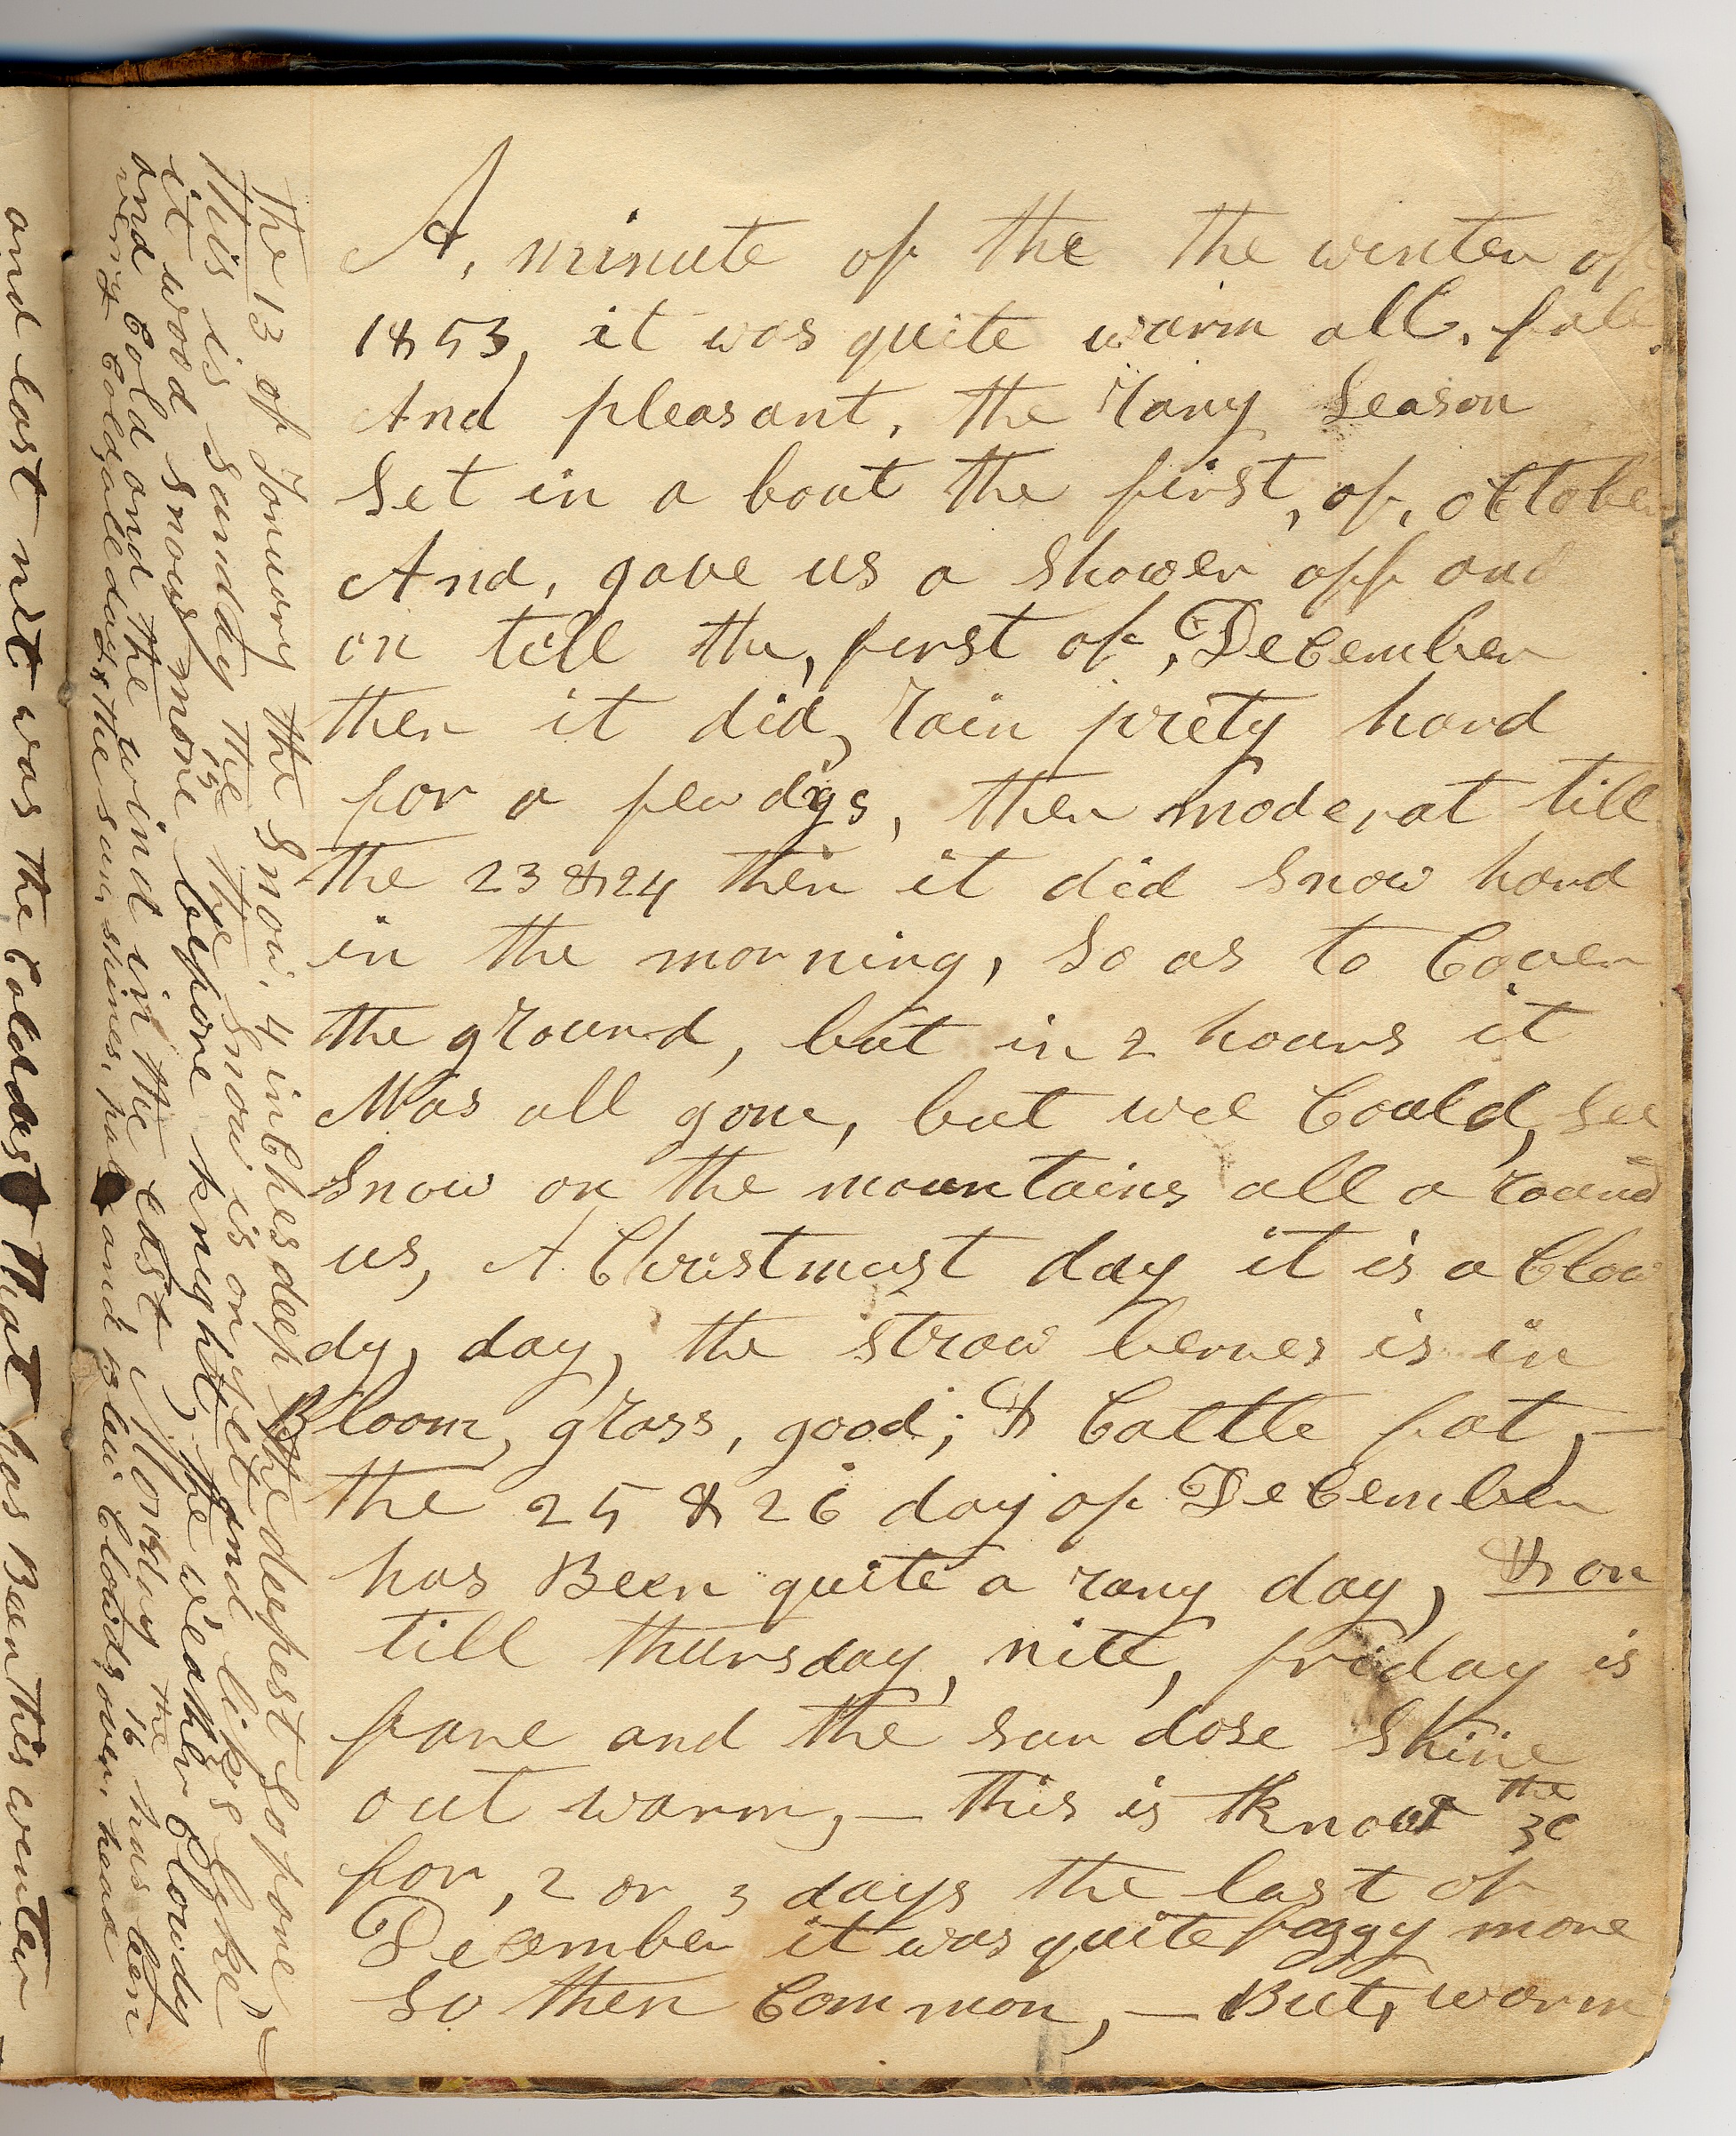 A, minute of the the winter of
1853, it was quite warm all, fall
And pleasant, the rany season
set in a bout the first, of, octtober
And, gave us a shower off and
on till the, first of, December
then it did, rain prety hard
for a few dys, then moderat till
the 23 & 24 then it did snow hard
in the morning, so as to cover
the ground, but in 2 hours it
Was all gone, but wee could, see
snow on the mountains all a round
us, A Christmust day it is a clow
dy, day, the straw berres is in
Bloom, grass, good; & cattle fat, —
the 25 & 26 day of December
has Been quite a rany day, & on
till thursday, nite, friday is
fare and the sun dose shine
out warm, — this is the 30
for, 2 or 3 days the last of
December it was quite foggy more
so then common, — But, warm
The 13 of Jonuary the snow, 4 inches deep the deepest so fore
this is sunday the 15 the snow is on yet and likes lyke
it wood snow more before knight, the weather clowdy
and cold and the wind in the east Monday the 16 has been
verry cold all day & the sun shines, pale and Blew clowds over, head
and last nit was the coldest that has Been this wenter